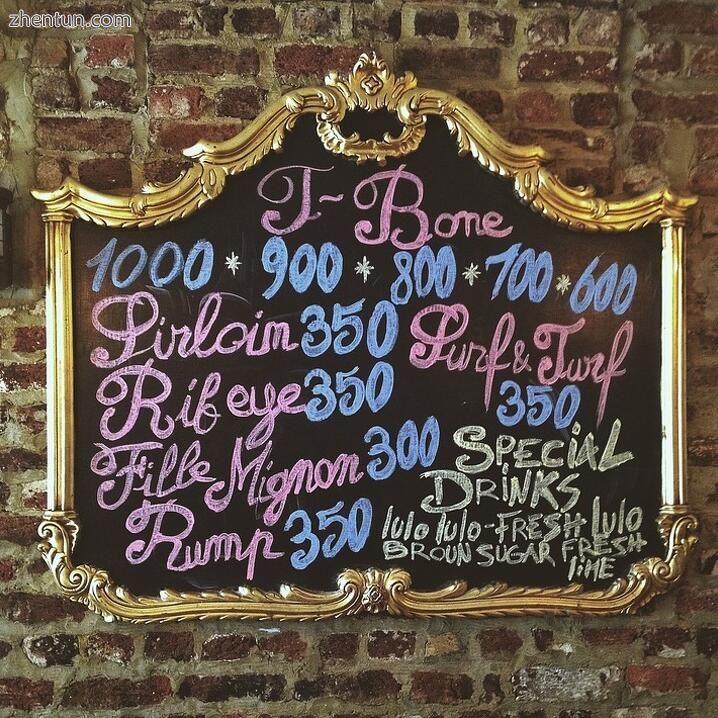 zhentun.com
T-Bone
1000 * 900 * 800 * 700 * 600
Sirloin 350
Surf & Turf
350
Rib eye 350
Fille Mignon 300
Rump 350
SPECIAL
DRINKS
lulo lulo-FRESH Lulo
BROUN SUGAR FRESH
liME